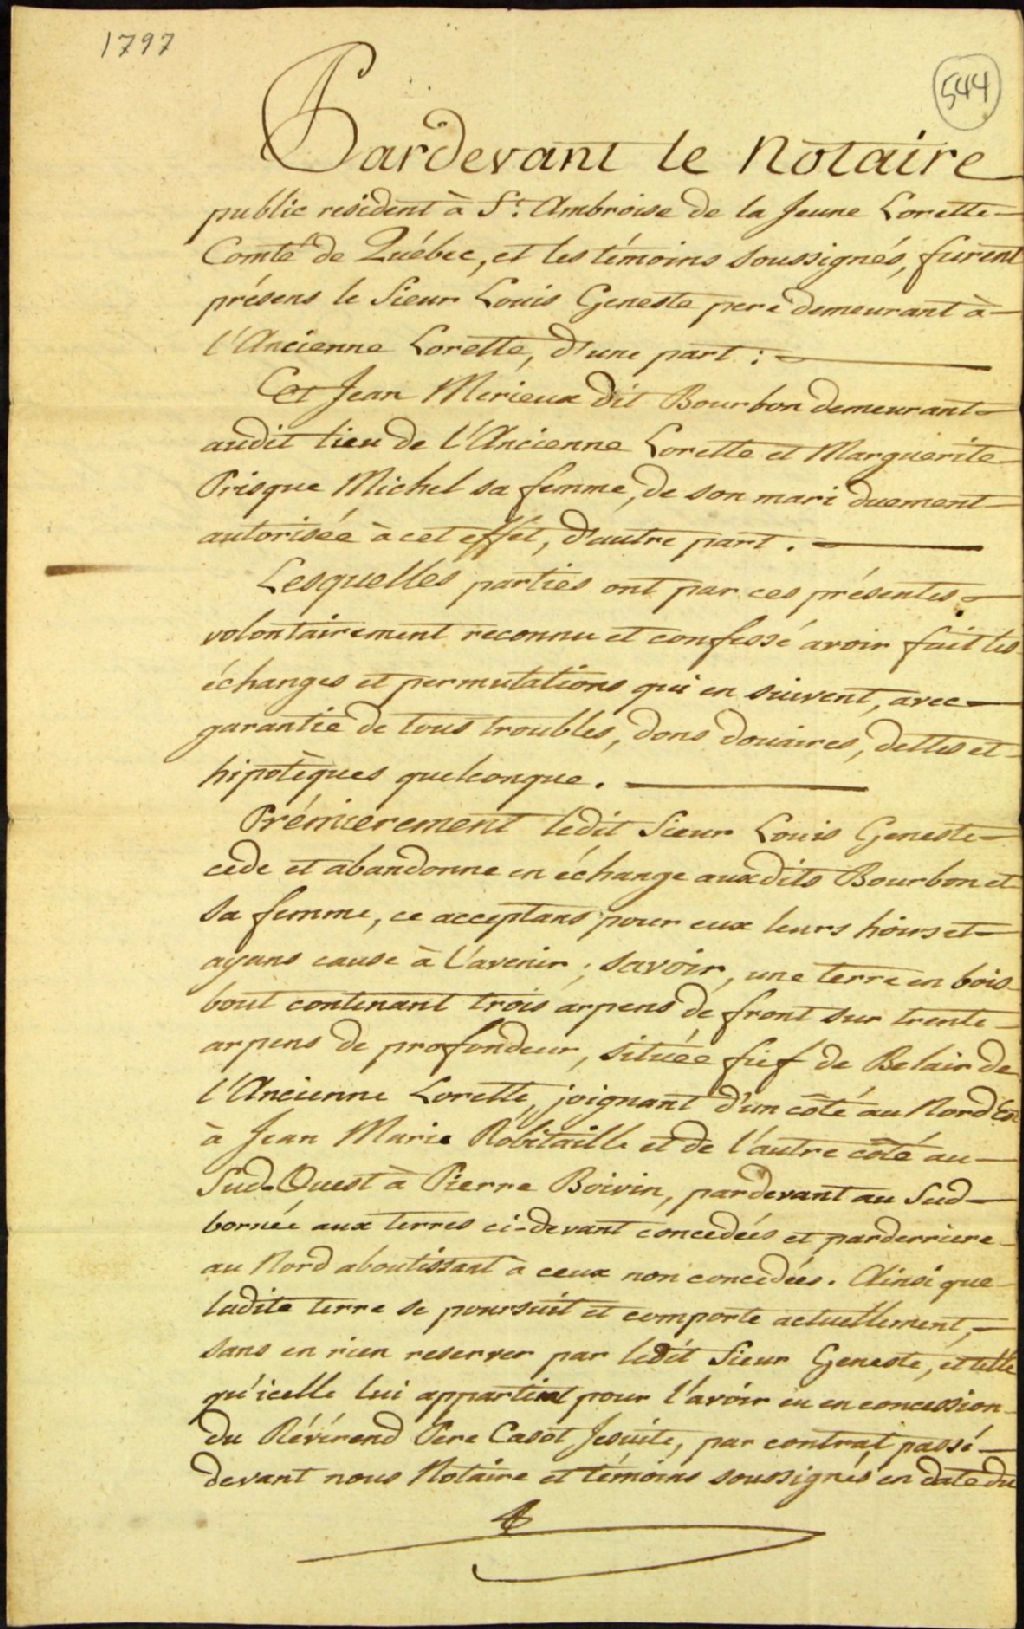 1797
544
Pardevant le Notaire
public resident à St. Ambroise de la Jeune Lorette
Comté de Québec, et les témoins soussignés, furent
présens le Sieur Louis Geneste pere demeurant à
l'Ancienne Lorette, d'une part :
Et Jean Merieux dit Bourbon demeurant
audit lieu de l'Ancienne Lorette et Marguerite
Prisque Michel sa femme, de son mari duement
autorisée à cet effet, d'autre part.
Lesquelles parties ont par ces présentes
volontairement reconnu et confessé avoir fait les
échanges et permutations qui en suivent, avec
garantie de tous troubles, dons douaires, dettes et
hipotèques quelconque.
Prémierement ledit Sieur Louis Geneste
cede et abandonne en échange auxdits Bourbon et
sa femme, ce acceptans pour eux leurs hoirs et
ayans cause à l'avenir ; savoir, une terre en bois
bout contenant trois arpens de front sur trente
arpens de profondeur, située fief de Belair de
l'Ancienne Lorette, joignant d'un côté au Nord Est
à Jean Marie Robitaille et de l'autre côté au
Sud-Ouest à Pierre Boivin, pardevant au Sud
bornée aux terres ci-devant concedées et parderriere
au Nord aboutissant à ceux non concedées. Ainsi que
ladite terre se poursuit et comporte actuellement,
sans en rien reserver par ledit Sieur Geneste, et telle
qu'icelle lui appartient pour l'avoir eu en concession
du Révérend Pere Casot Jesuite, par contrat passé
devant nous Notaire et témoins soussignés en date du